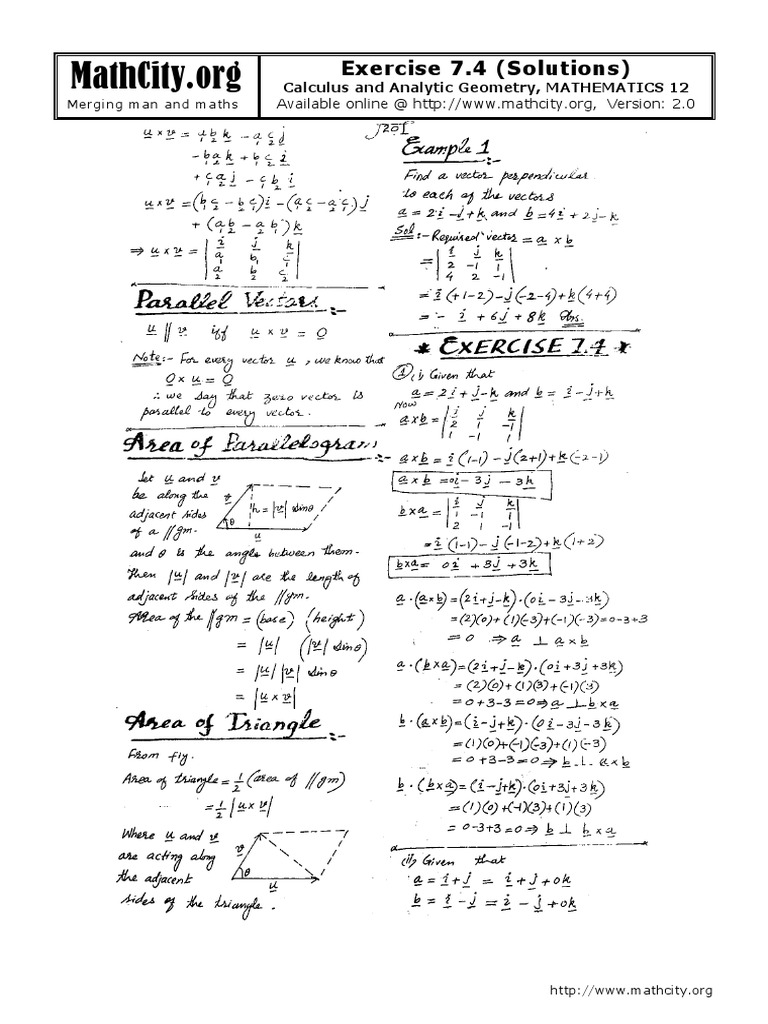 MathCity.org
Merging man and maths
Exercise 7.4 (Solutions)
Calculus and Analytic Geometry, MATHEMATICS 12
Available online @ http://www.mathcity.org, Version: 2.0
u × v = a₁b₂k - a₁c₂j
- b₁a₂k + b₁c₂i
+ c₁a₂j - c₁b₂i
u × v = (b₁c₂ - b₂c₁)i - (a₁c₂ - a₂c₁)j
+ (a₁b₂ - a₂b₁)k
⇒ u × v = | i j k |
| a₁ b₁ c₁ |
| a₂ b₂ c₂ |
Parallel Vectors:-
u // v iff u × v = 0
Note:- For every vector u, we know that
0 × u = 0
∴ we say that zero vector is
parallel to every vector.
Area of Parallelogram:-
Let u and v
be along the
adjacent sides
of a //gm.
v h = |v| sinθ
θ
u
and θ is the angle between them.
Then |u| and |v| are the length of
adjacent sides of the //gm.
Area of the //gm = (base) (height)
= |u| (|v| sinθ)
= |u| |v| sinθ
= |u × v|
Area of Triangle:-
From fig.
Area of triangle = 1/2 (area of //gm)
= 1/2 |u × v|
Where u and v
are acting along
the adjacent
sides of the triangle.
v
θ
u
Example 1:-
Find a vector perpendicular
to each of the vectors
a = 2i - j + k and b = 4i + 2j - k
Sol:- Required vector = a × b
= | i j k |
| 2 -1 1 |
| 4 2 -1 |
= i(+1-2) - j(-2-4) + k(4+4)
= - i + 6j + 8k Ans.
* EXERCISE 7.4 *
① (i) Given that
a = 2i + j - k and b = i - j + k
Now
a × b = | i j k |
| 2 1 -1 |
| 1 -1 1 |
a × b = i(1-1) - j(2+1) + k(-2-1)
a × b = 0i - 3j - 3k
b × a = | i j k |
| 1 -1 1 |
| 2 1 -1 |
= i(1-1) - j(-1-2) + k(1+2)
b×a = 0i + 3j + 3k
a · (a×b) = (2i+j-k)·(0i-3j-3k)
= (2)(0)+(1)(-3)+(-1)(-3) = 0-3+3
= 0 ⇒ a ⊥ a×b
a · (b×a) = (2i+j-k)·(0i+3j+3k)
= (2)(0)+(1)(3)+(-1)(3)
= 0+3-3 = 0 ⇒ a ⊥ b×a
b · (a×b) = (i-j+k)·(0i-3j-3k)
= (1)(0)+(-1)(-3)+(1)(-3)
= 0+3-3 = 0 ⇒ b ⊥ a×b
b · (b×a) = (i-j+k)·(0i+3j+3k)
= (1)(0)+(-1)(3)+(1)(3)
= 0-3+3 = 0 ⇒ b ⊥ b×a
(ii) Given that
a = i + j = i + j + 0k
b = i - j = i - j + 0k
http://www.mathcity.org